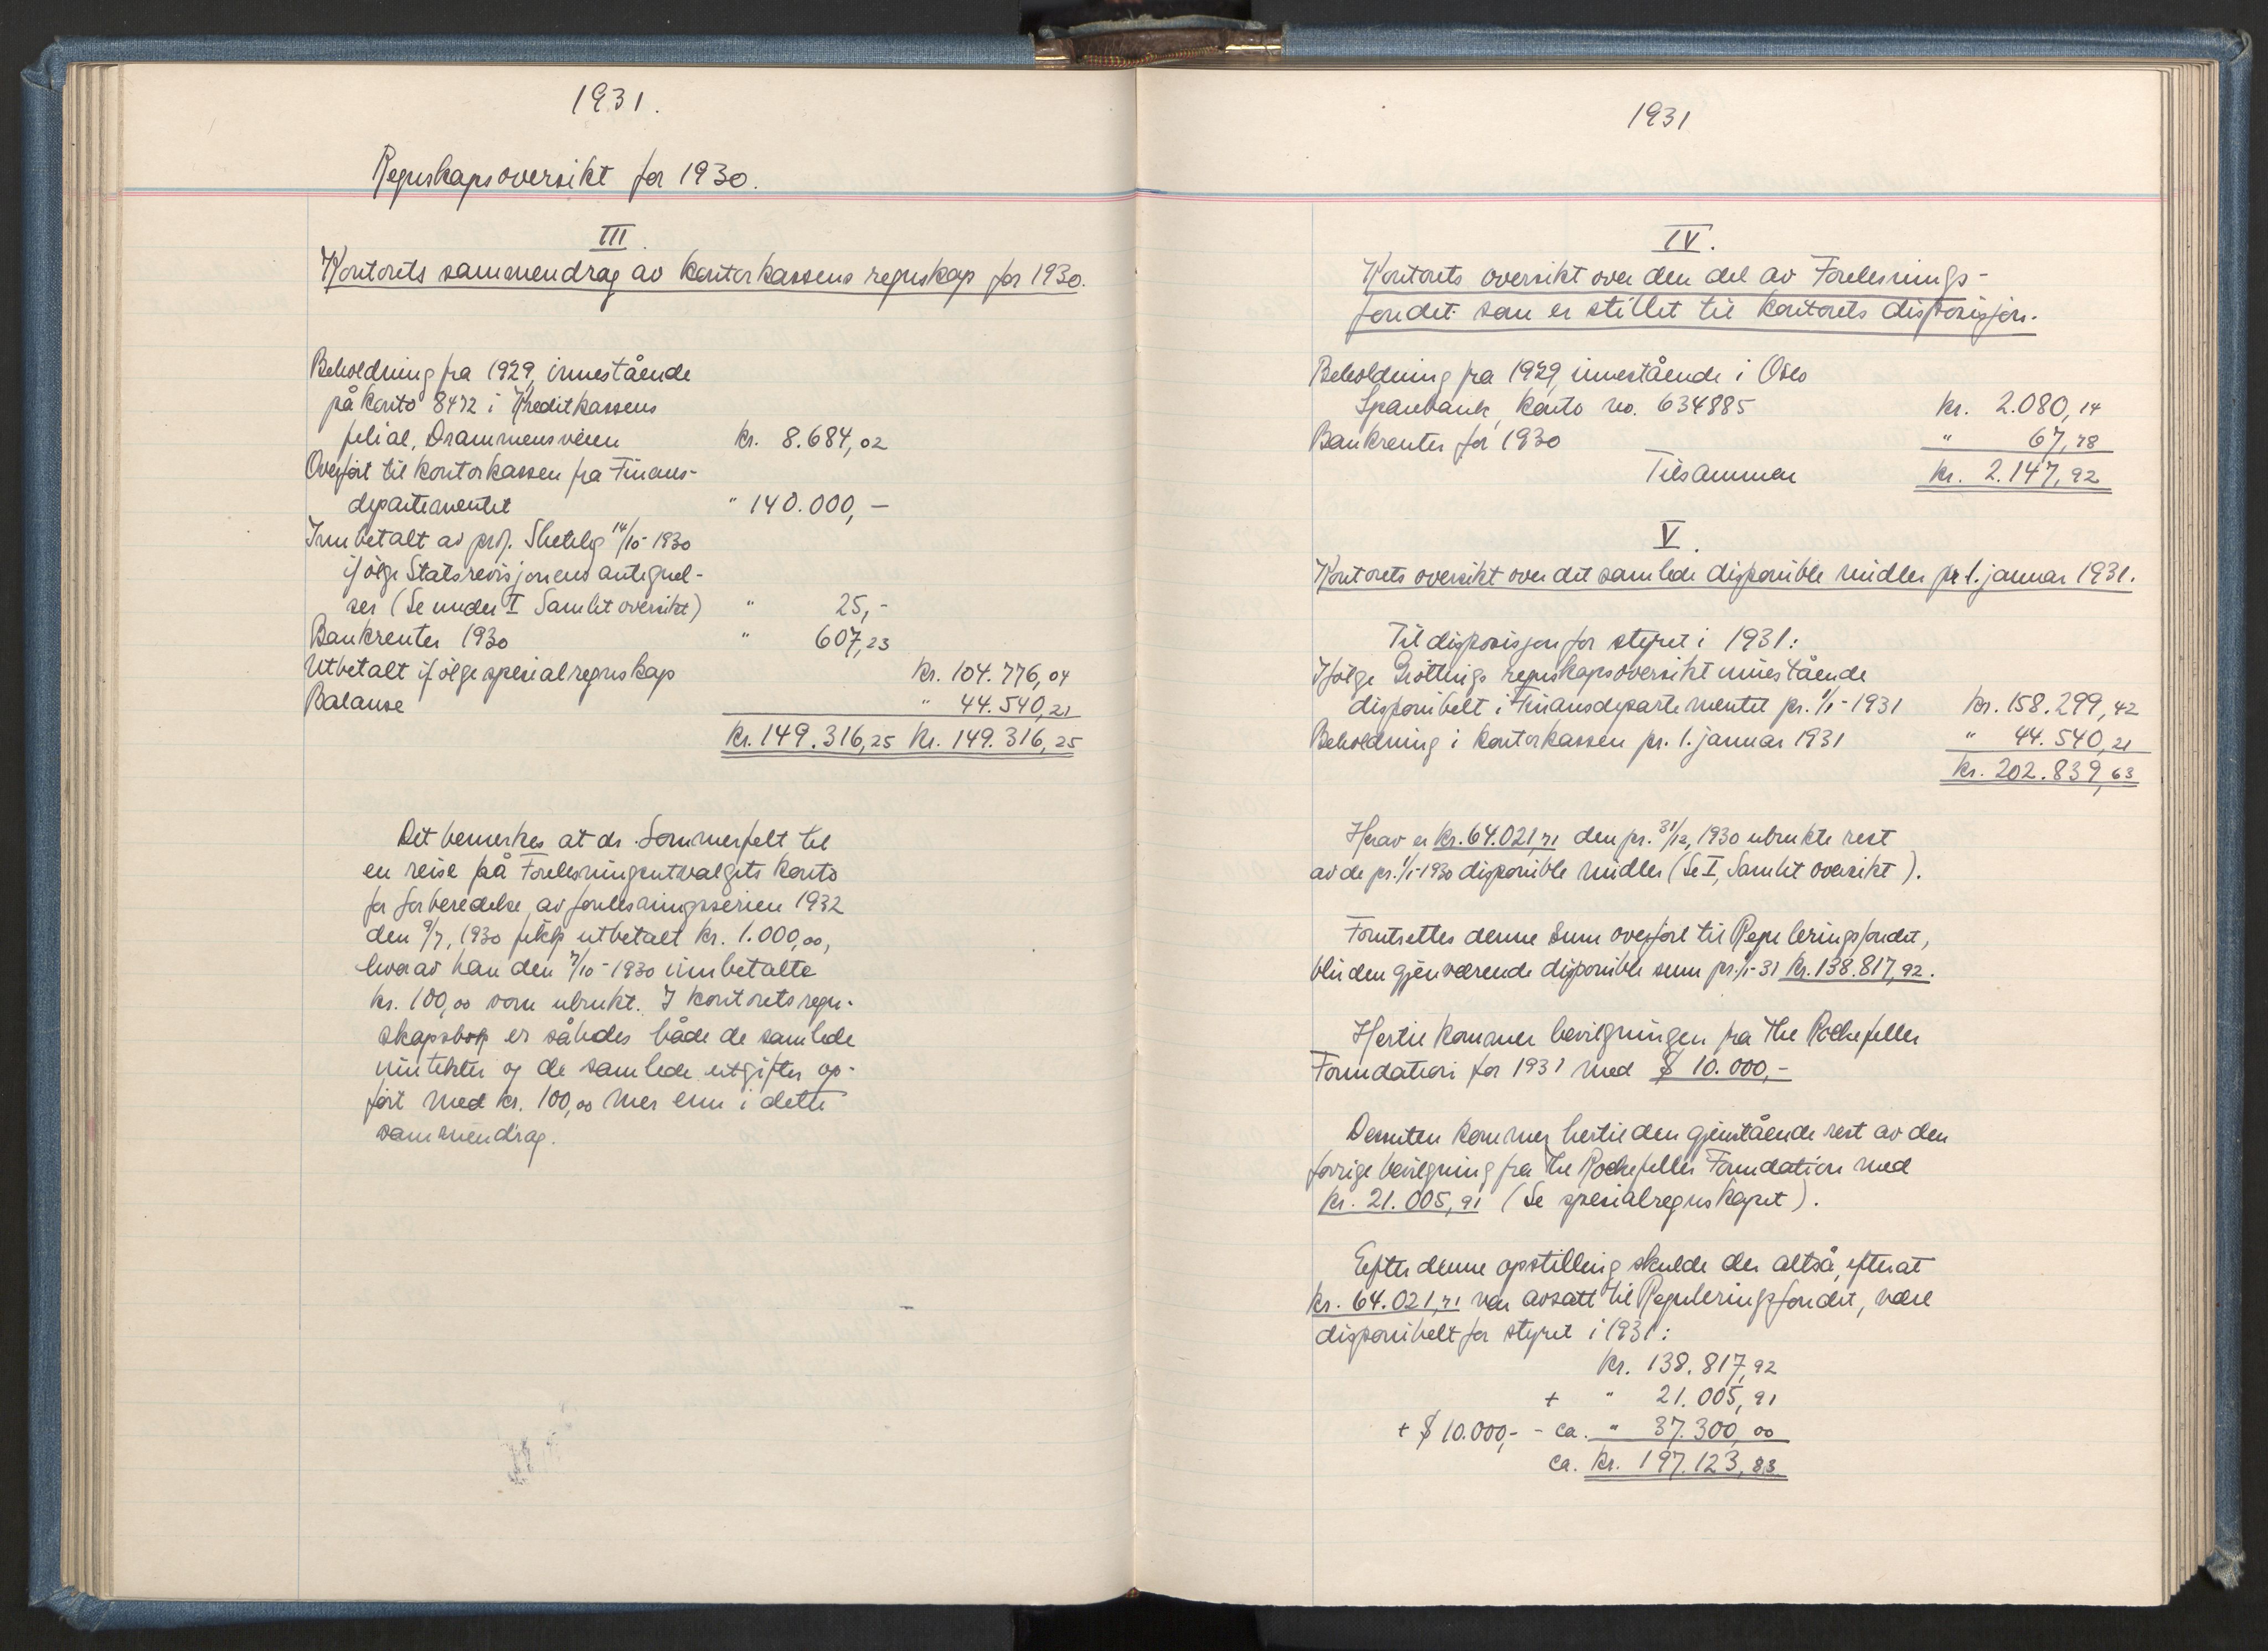 1931.
Regnskapsoversikt for 1930.
III.
Kontorets sammendrag av kontorkassens regnskap for 1930.
Beholdning fra 1929, innestående
på konto 8472 i Kreditkassens
filial, Drammensveien kr. 8.684,02
Overført til kontorkassen fra Finans-
departementet " 140.000,—
Innbetalt av prof. Shetelig 14/10-1930
ifölge Statsrevisjonens antegnel-
ser (Se under I Samlet oversikt) " 25,-
Bankrenter 1930 " 607,23
Utbetalt ifölge spesialregnskap kr. 104.776,04
Balanse " 44.540,21
kr. 149.316,25 kr. 149.316,25
Det bemerkes at dr. Sommerfelt til
en reise på Forelesningsutvalgets konto
for forberedelse av forelesningsserien 1932
den 9/7, 1930 fikk utbetalt kr. 1.000,00,
hvorav han den 7/10-1930 innbetalte
kr. 100,00 som ubrukt. I kontorets regn-
skapsbok er således både de samlede
inntekter og de samlede utgifter op-
fört med kr. 100,00 mer enn i dette
sammendrag.
1931
IV.
Kontorets oversikt over den del av Forelesnings-
fondet som er stillet til kontorets disposisjon.
Beholdning fra 1929, innestående i Oslo
Sparebank, konto no. 634885 kr. 2.080,14
Bankrenter for 1930 " 67,78
Tilsammen kr. 2.147,92
V.
Kontorets oversikt over det samlede disponible midler pr 1. januar 1931.
Til disposisjon for styret i 1931:
Ifölge Gröttings regnskapsoversikt innestående
disponibelt i Finansdepartementet pr. 1/1-1931 kr. 158.299,42
Beholdning i kontorkassen pr. 1. januar 1931 " 44.540,21
kr. 202.839,63
Herav er kr. 64.021,71 den pr. 31/12, 1930 ubrukte rest
av de pr. 1/1-1930 disponible midler (Se I, Samlet oversikt).
Forutsettes denne sum overfört til Reguleringsfondet,
blir den gjenværende disponible sum pr. 1/1-31 kr. 138.817,92.
Hertil kommer bevilgningen fra The Rockefeller
Foundation for 1931 med $ 10.000,-
Dessuten kommer hertil den gjenstående rest av den
forrige bevilgning fra The Rockefeller Foundation med
kr. 21.005,91 (Se spesialregnskapet).
Efter denne opstilling skulde der altså, efterat
kr. 64.021,71 var avsatt til Reguleringsfondet, være
disponibelt for styret i 1931:
kr. 138.817,92
+ " 21.005,91
+ $ 10.000,- - ca. " 37.300,00
ca. kr. 197.123,83